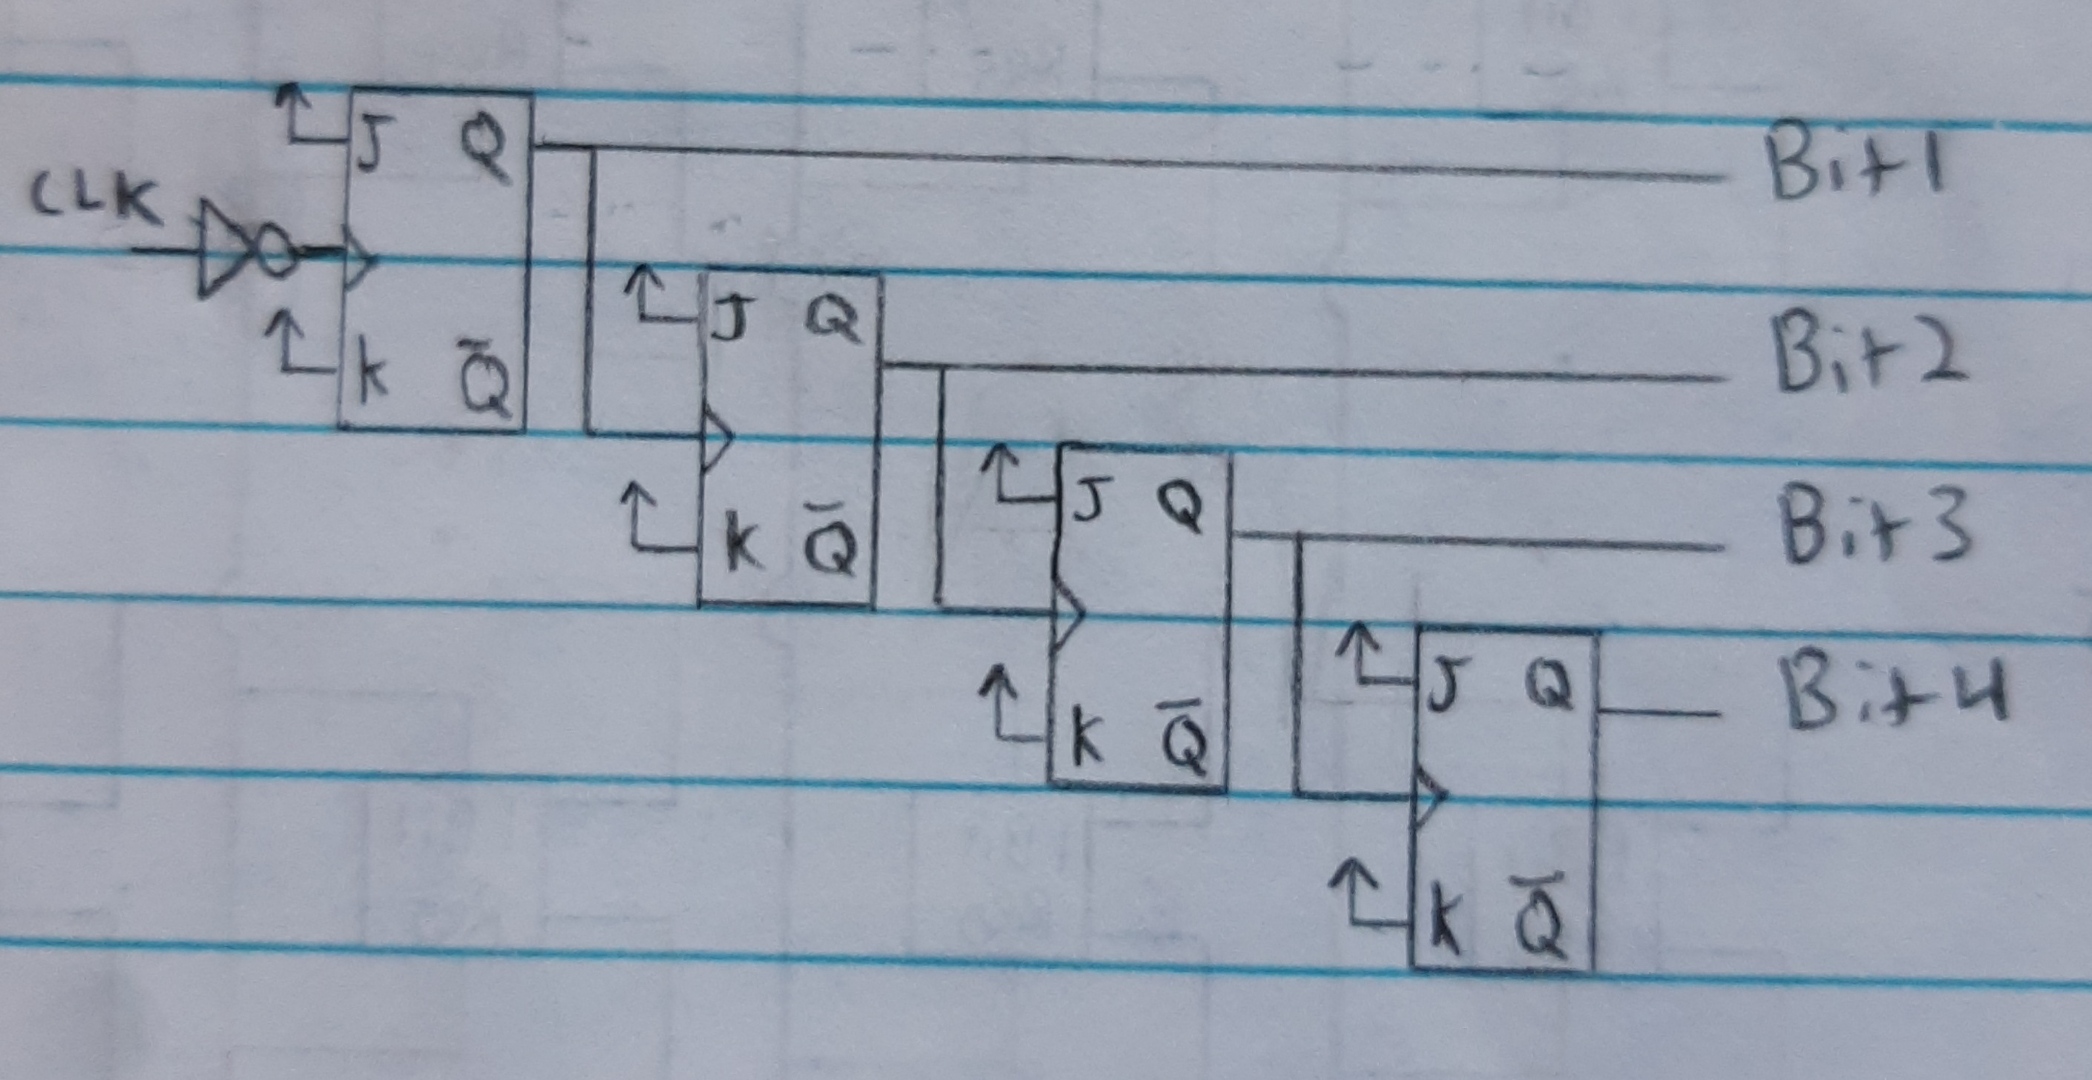 J Q
CLK
K Q̅
Bit 1
J Q
K Q̅
Bit 2
J Q
K Q̅
Bit 3
J Q
K Q̅
Bit 4